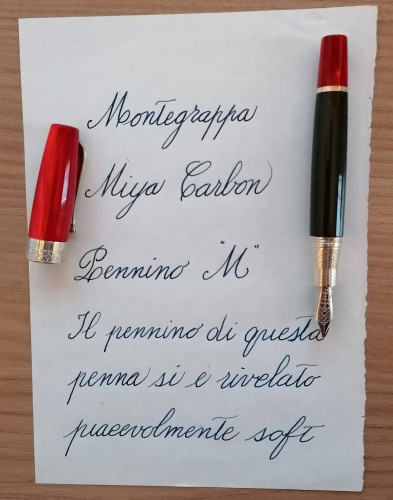 Montegrappa
Miya Carbon
Pennino "M"
Il pennino di questa
penna si è rivelato
piacevolmente soft